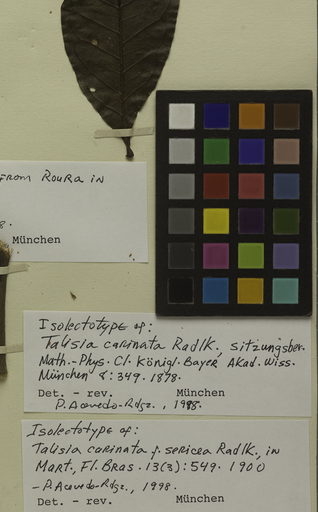 From Roura in
8.
München
Isolectotype of:
Talisia carinata Radlk., Sitzungsber.
Math.-Phys. Cl. Königl. Bayer Akad. Wiss.
München 8: 349. 1878.
Det. - rev. München
P. Acevedo-Rdgz., 1998.
Isolectotype of:
Talisia carinata f. sericea Radlk., in
Mart., Fl. Bras. 13(3): 549. 1900
- P. Acevedo-Rdgz., 1998.
Det. - rev. München